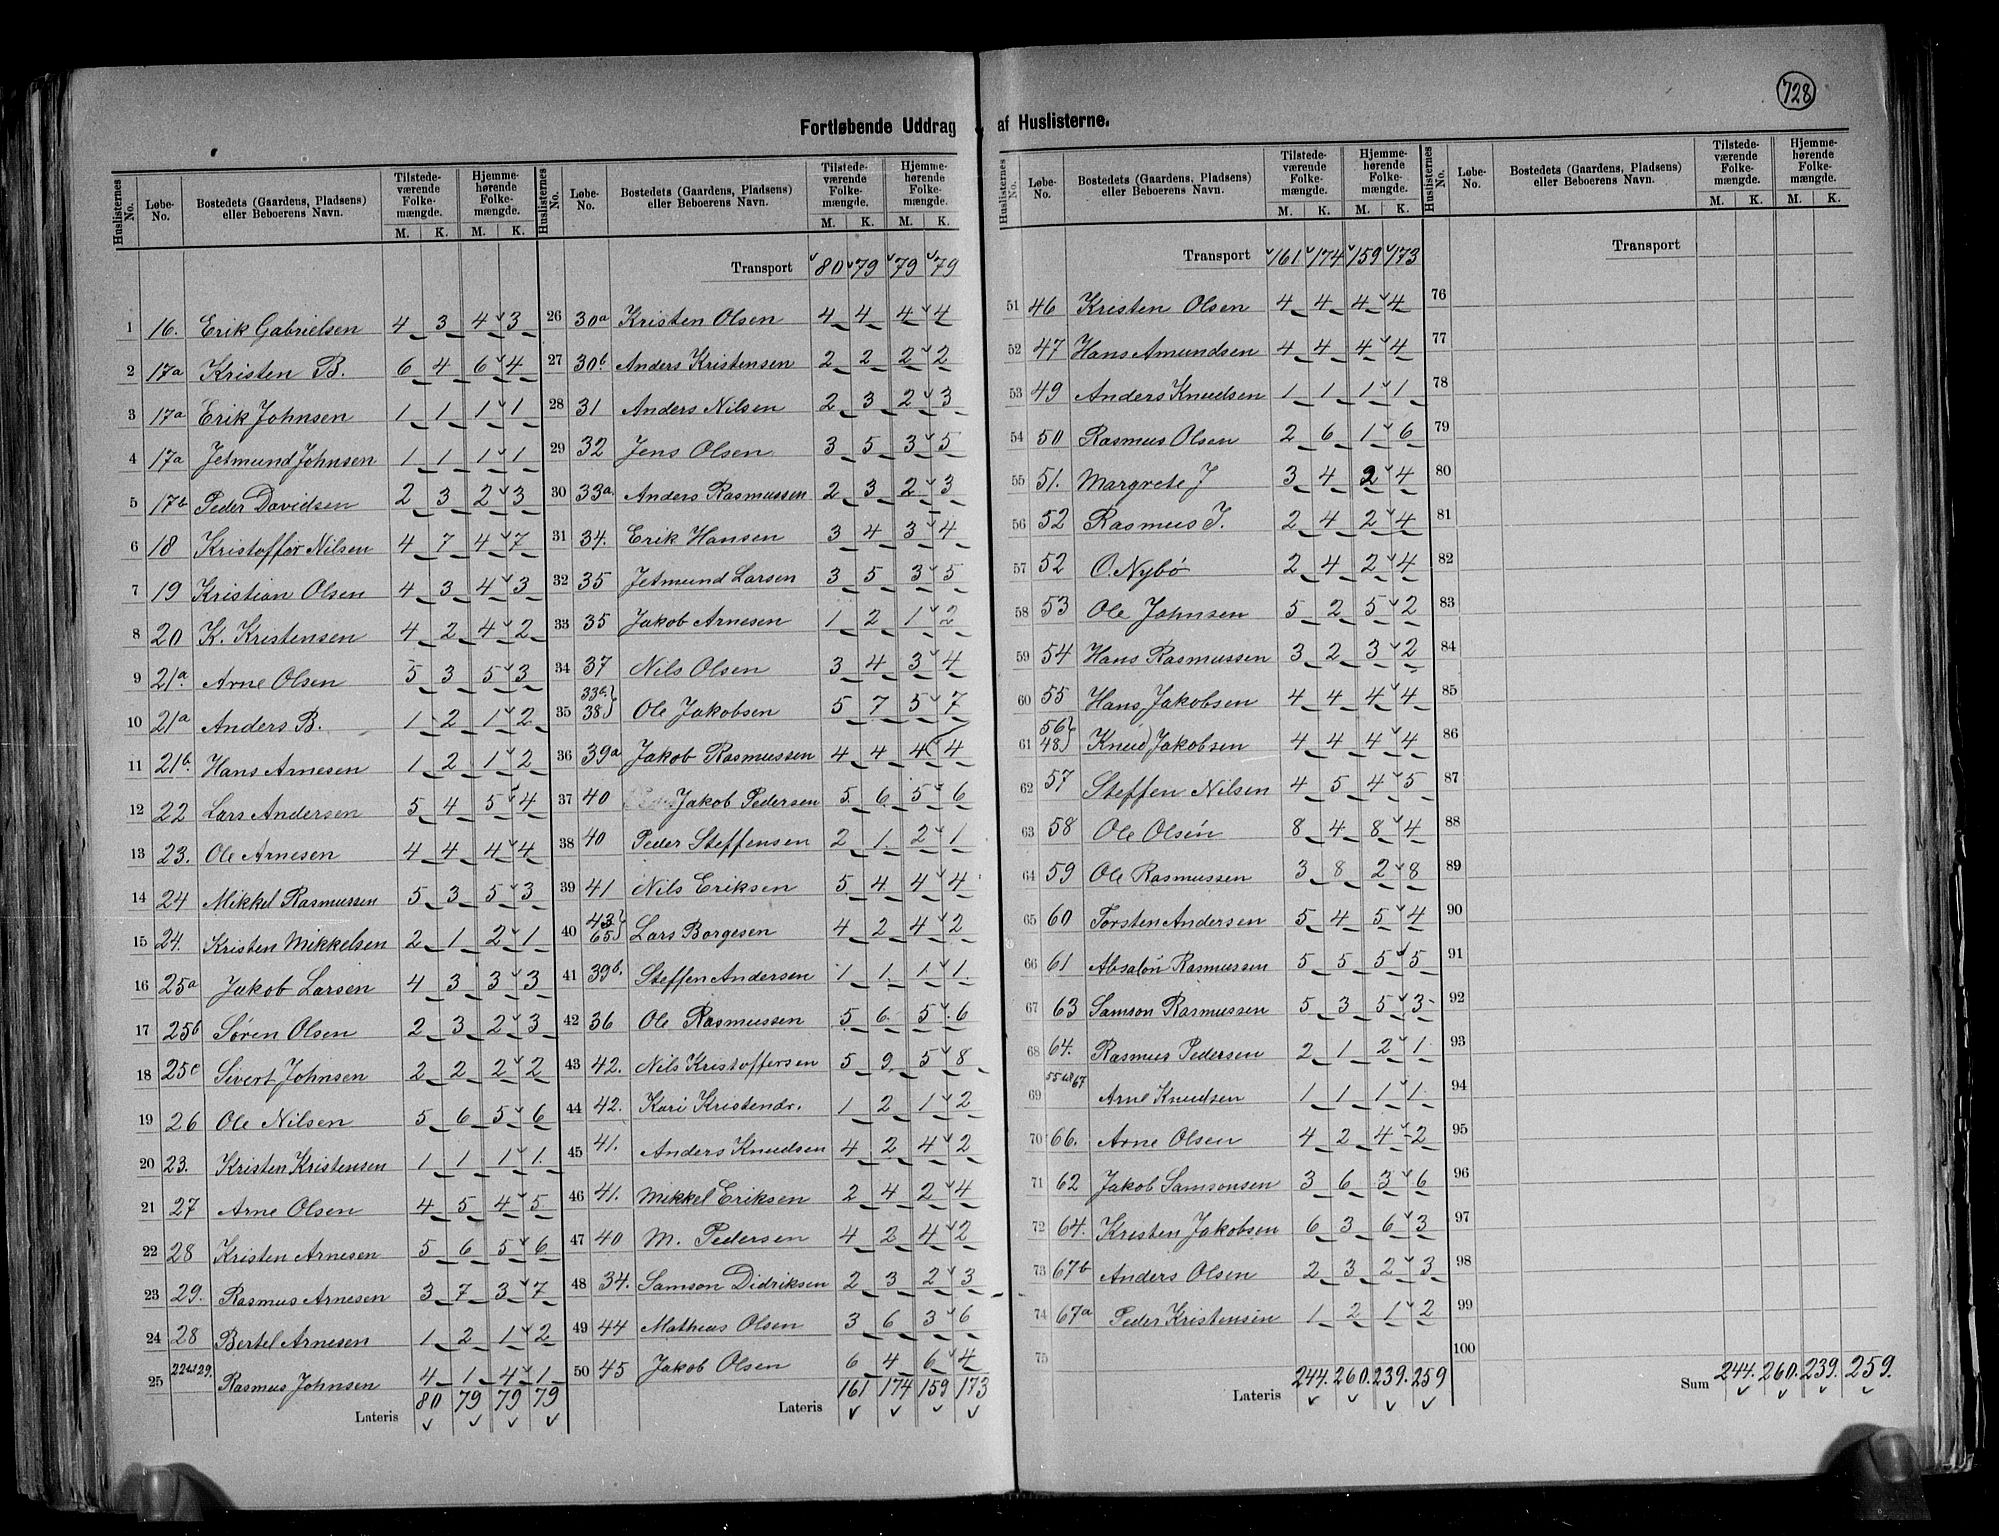 728
Fortløbende Uddrag af Huslisterne.
Huslisternes No. Løbe-No. Bostedets (Gaarden, Pladsens) eller Beboerens Navn. Tilstedeværende Folkemængde. M. K. Hjemmehørende Folkemængde. M. K.
1 16. Erik Gabrielsen 4 3 4 3
2 17a Kristen B. 6 4 6 4
3 17a Erik Johnsen 1 1 1 1
4 17a Jetmund Johnsen 1 1 1 1
5 17b Peder Davidsen 2 3 2 3
6 18 Kristoffor Nilsen 4 7 4 7
7 19 Kristian Olsen 4 3 4 3
8 20 K. Kristensen 4 2 4 2
9 21a Arne Olsen 5 3 5 3
10 21a Anders B. 1 2 1 2
11 21b. Hans Arnesen 1 2 1 2
12 22 Lars Andersen 5 4 5 4
13 23. Ole Arnesen 4 4 4 4
14 24 Mikkel Rasmussen 5 3 5 3
15 24. Kristen Mikkelsen 2 1 2 1
16 25a Jakob Larsen 4 3 3 3
17 25b Søren Olsen 2 3 2 3
18 25c Sivert Johnsen 2 2 2 2
19 26 Ole Nilsen 5 6 5 6
20 23. Kristen Kristensen 1 1 1 1.
21 27 Arne Olsen 4 5 4 5
22 28 Kristen Arnesen 5 6 5 6
23 29. Rasmus Arnesen 3 7 3 7
24 28 Bertel Arnesen 1 2 1 2
25 22 29. Rasmus Johnsen 4 1 4 1
Lateris 80 79 79 79
Huslisternes No. Løbe-No. Bostedets (Gaardens, Pladsens) eller Beboerens Navn. Tilstedeværende Folkemængde. M. K. Hjemmehørende Folkemængde. M. K.
Transport 80 79 79 79
26 30a Kristen Olsen 4 4 4 4
27 30b. Anders Kristensen 2 2 2 2
28 31 Anders Nilsen 2 3 2 3
29 32 Jens Olsen 3 5 3 5
30 33a. Anders Rasmussen 2 3 2 3
31 34. Erik Hansen 3 4 3 4
32 35 Jetmund Larsen 3 5 3 5
33 35 Jakob Arnesen 1 2 1 2
34 37 Nils Olsen 3 4 3 4
35 38 Ole Jakobsen 5 7 5 7
36 39a Jakob Rasmussen 4 4 4 4
37 40 Jakob Pedersen 5 6 5 6
38 40 Peder Steffensen 2 1 2 1
39 41 Nils Eriksen 5 4 4 4
40 43 65 Lars Borgesen 4 2 4 2
41 39b. Steffen Andersen 1 1 1 1
42 36 Ole Rasmussen 5 6 5 6
43 42. Nils Kristoffersen 5 9 5 8
44 42. Kari Kristendr. 1 2 1 2
45 41. Anders Knudsen 4 2 4 2
46 41. Mikkel Eriksen 2 4 2 4
47 40 M. Pedersen 4 2 4 2
48 34. Samson Didriksen 2 3 2 3
49 44 Matheus Olsen 3 6 3 6
50 45 Jakob Olsen 6 4 6 4
Lateris 161 174 159 173
Huslisternes No. Løbe-No. Bostedets (Gaardens, Pladsens) eller Beboerens Navn. Tilstedeværende Folkemængde. M. K. Hjemmehørende Folkemængde. M. K.
Transport 161 174 159 173
51 46 Kristen Olsen 4 4 4 4
52 47 Hans Amundsen 4 4 4 4
53 49 Anders Knudsen 1 1 1 1
54 50 Rasmus Olsen 2 6 1 6
55 51. Margrete J 3 4 2 4
56 52 Rasmus J. 2 4 2 4
57 52 O. Nybø 2 4 2 4
58 53 Ole Johnsen 5 2 5 2
59 54 Hans Rasmussen 3 2 3 2
60 55 Hans Jakobsen 4 4 4 4
61 56 48 Knud Jakobsen 4 4 4 4
62 57 Steffen Nilsen 4 5 4 5
63 58 Ole Olsen 8 4 8 4
64 59 Ole Rasmussen 3 8 2 8
65 60 Torsten Andersen 5 4 5 4
66 61 Absalon Rasmussen 5 5 5 5
67 63 Samson Rasmussen 5 3 5 3
68 64. Rasmus Pedersen 2 1 2 1
69 55 67 Arne Knudsen 1 1 1 1
70 66. Arne Olsen 4 2 4 2
71 62 Jakob Samsonsen 3 6 3 6
72 64. Kristen Jakobsen 6 3 6 3
73 67b Anders Olsen 2 3 2 3
74 67a Peder Kristensen 1 2 1 2
75
Lateris 244. 260. 239. 259
Huslisternes No. Løbe-No. Bostedets (Gaardens, Pladsens) eller Beboerens Navn. Tilstedeværende Folkemængde. M. K. Hjemmehørende Folkemængde. M. K.
Transport
76
77
78
79
80
81
82
83
84
85
86
87
88
89
90
91
92
93
94
95
96
97
98
99
100
Sum 244. 260. 239. 259.